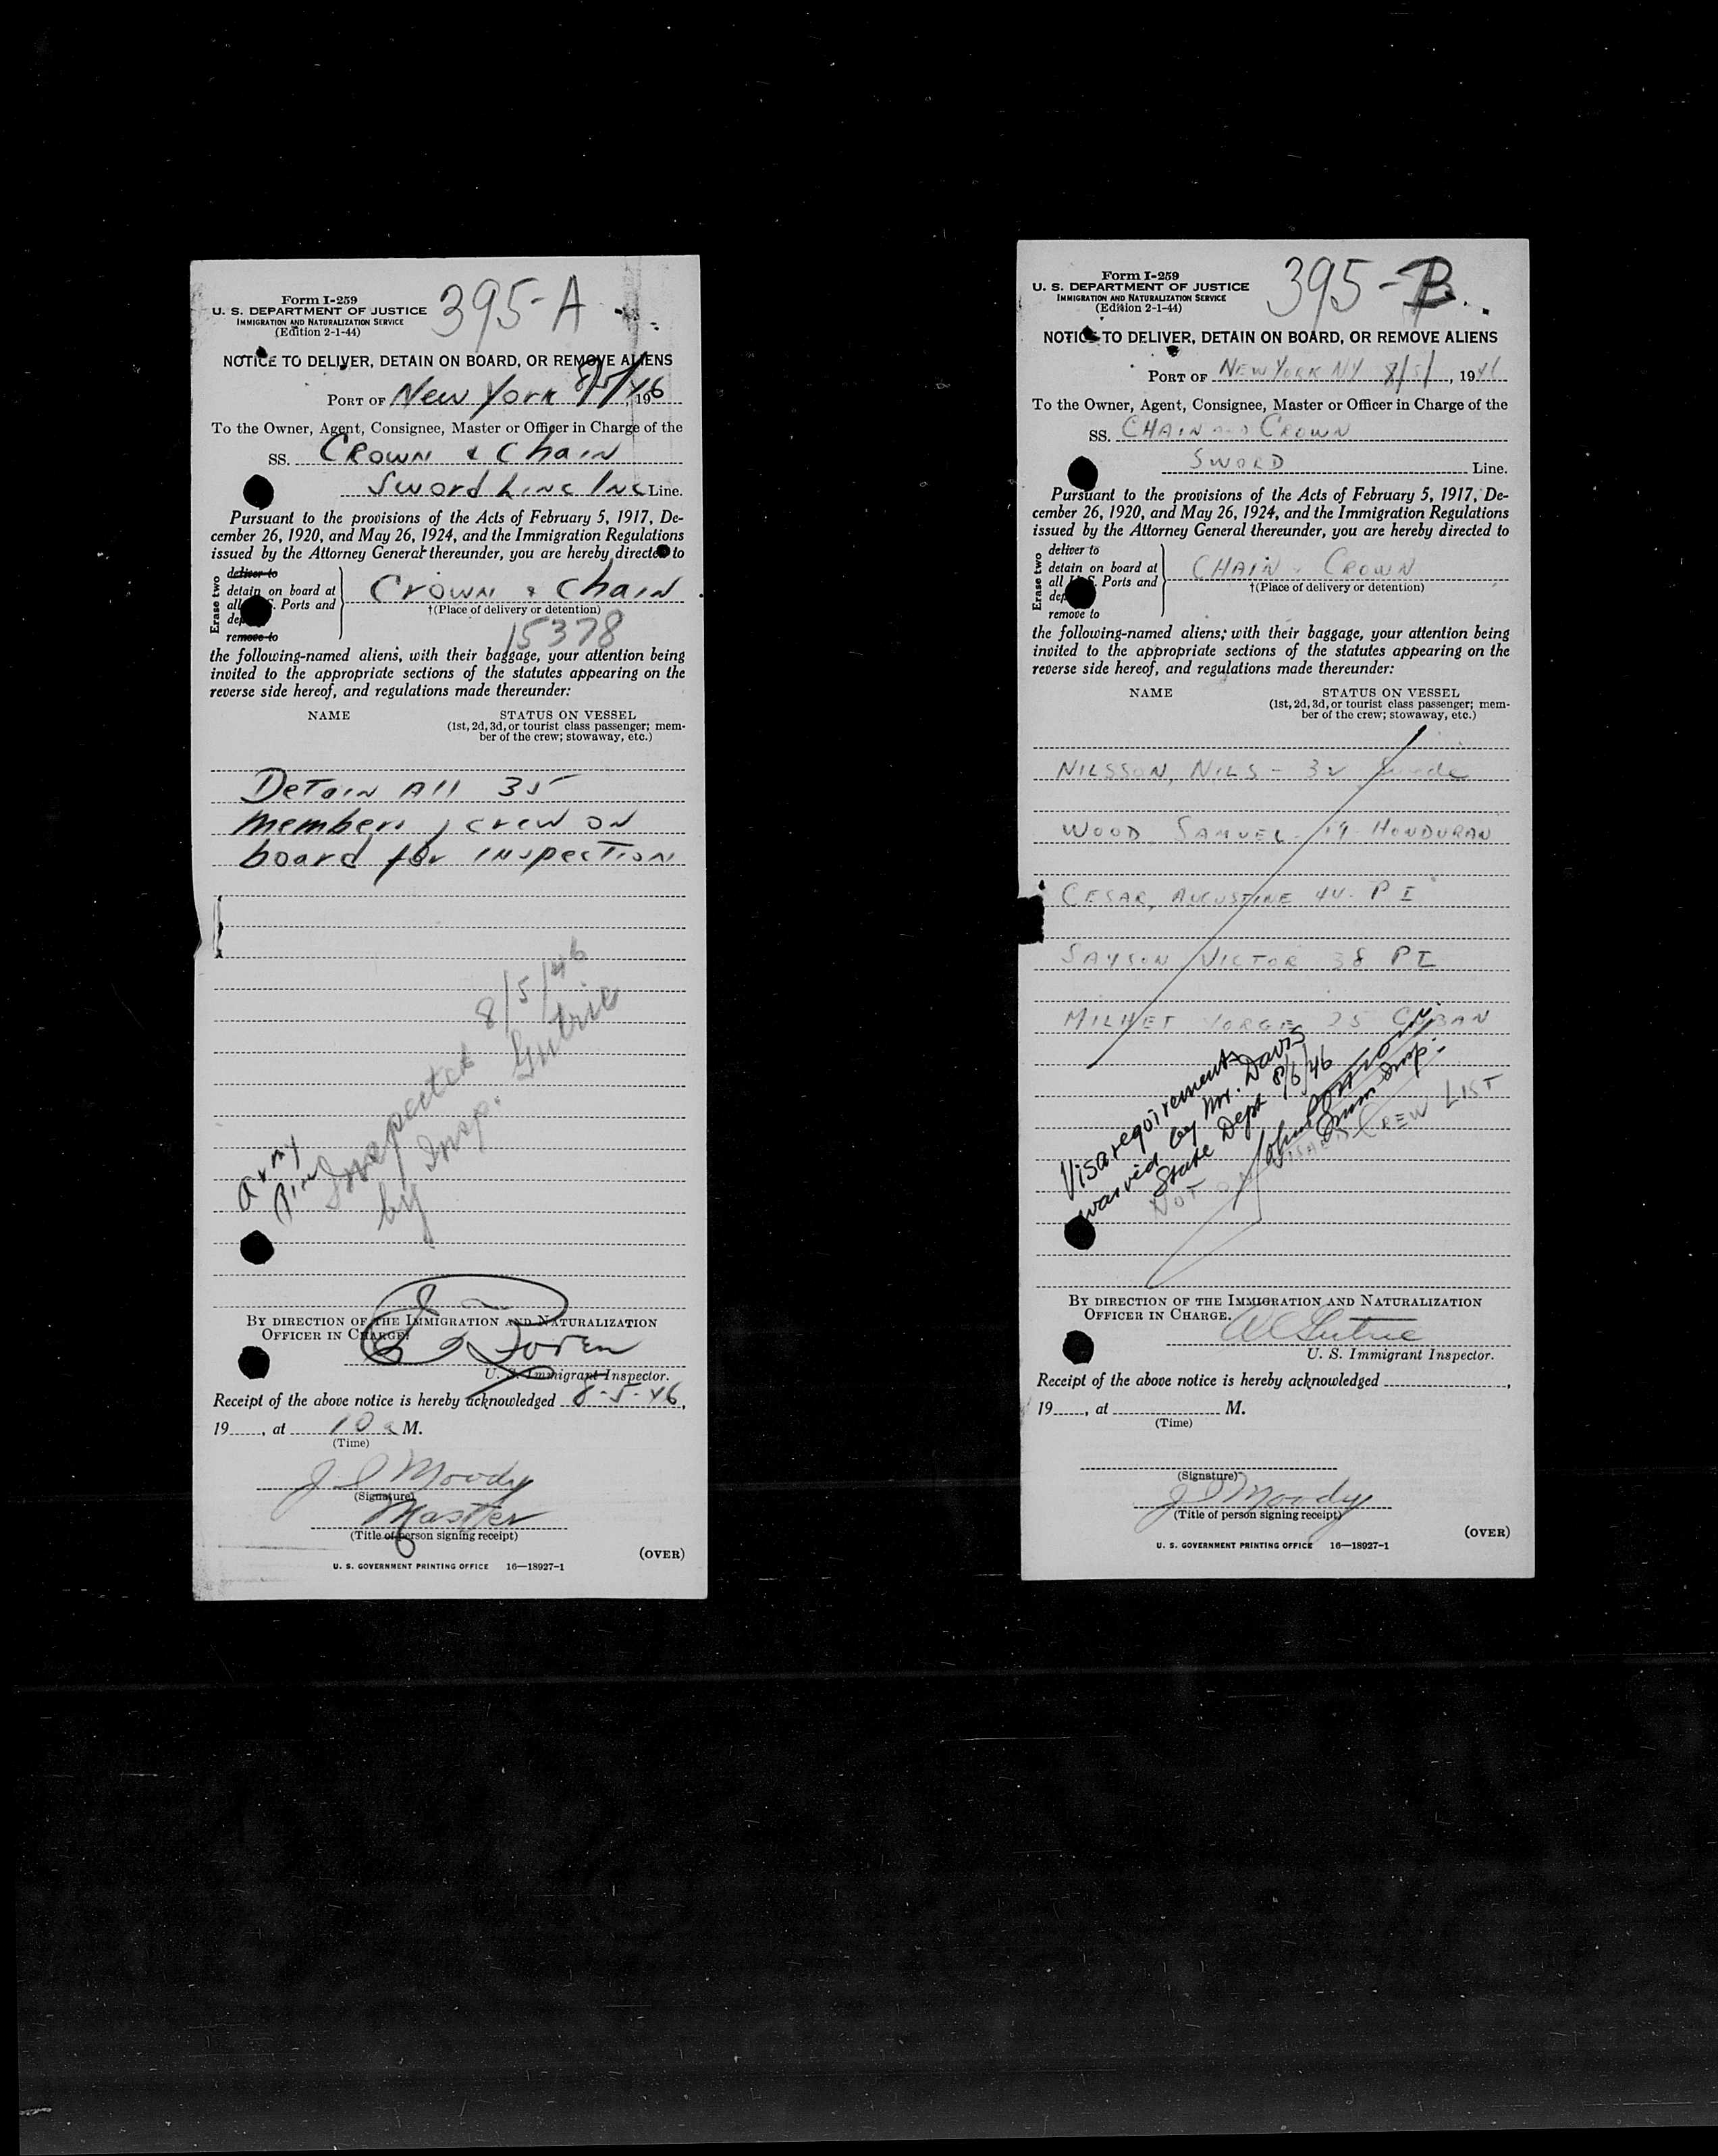 Form I-259
U. S. DEPARTMENT OF JUSTICE
IMMIGRATION AND NATURALIZATION SERVICE
(Edition 2-1-44)
395-A
NOTICE TO DELIVER, DETAIN ON BOARD, OR REMOVE ALIENS
PORT OF New York 8/5/46, 196
To the Owner, Agent, Consignee, Master or Officer in Charge of the
SS. CROWN & Chain
Sword Line Inc Line.
Pursuant to the provisions of the Acts of February 5, 1917, De-
cember 26, 1920, and May 26, 1924, and the Immigration Regulations
issued by the Attorney General thereunder, you are hereby directed to
Erase two
deliver to
detain on board at
all U.S. Ports and
remove to
Crown & Chain
†(Place of delivery or detention)
15378
the following-named aliens, with their baggage, your attention being
invited to the appropriate sections of the statutes appearing on the
reverse side hereof, and regulations made thereunder:
NAME
STATUS ON VESSEL
(1st, 2d, 3d, or tourist class passenger; mem-
ber of the crew; stowaway, etc.)
Detain All 35
members crew on
board for inspection
Inspected 8/5/46
by Insp. Gutrie
Army
BY DIRECTION OF THE IMMIGRATION AND NATURALIZATION
OFFICER IN CHARGE.
U. S. Immigrant Inspector.
Receipt of the above notice is hereby acknowledged 8-5-46,
19 , at 10 a M.
(Time)
J I Moody
(Signature)
Master
(Title of person signing receipt)
(OVER)
U. S. GOVERNMENT PRINTING OFFICE 16—18927-1
Form I-259
U. S. DEPARTMENT OF JUSTICE
IMMIGRATION AND NATURALIZATION SERVICE
(Edition 2-1-44)
395-B
NOTICE TO DELIVER, DETAIN ON BOARD, OR REMOVE ALIENS
PORT OF NEW YORK NY 8/5/, 1946
To the Owner, Agent, Consignee, Master or Officer in Charge of the
SS. CHAIN AND CROWN
SWORD Line.
Pursuant to the provisions of the Acts of February 5, 1917, De-
cember 26, 1920, and May 26, 1924, and the Immigration Regulations
issued by the Attorney General thereunder, you are hereby directed to
Erase two
deliver to
detain on board at
all U.S. Ports and
remove to
CHAIN & CROWN
†(Place of delivery or detention)
the following-named aliens; with their baggage, your attention being
invited to the appropriate sections of the statutes appearing on the
reverse side hereof, and regulations made thereunder:
NAME
STATUS ON VESSEL
(1st, 2d, 3d, or tourist class passenger; mem-
ber of the crew; stowaway, etc.)
NILSSON, NILS - 32 Swede
WOOD, SAMUEL - 19 - HONDURAN
CESAR, AUGUSTINE 44 - P I
SAYSON VICTOR 38 PI
MILHET JORGE 25 CUBAN
Visa requirements
waived by Mr. Davis
State Dept 8/6/46
Imm. Insp.
NOT ON VISAED CREW LIST
BY DIRECTION OF THE IMMIGRATION AND NATURALIZATION
OFFICER IN CHARGE.
Gutrie
U. S. Immigrant Inspector.
Receipt of the above notice is hereby acknowledged ,
19 , at M.
(Time)
(Signature)
J I Moody
(Title of person signing receipt)
(OVER)
U. S. GOVERNMENT PRINTING OFFICE 16—18927-1